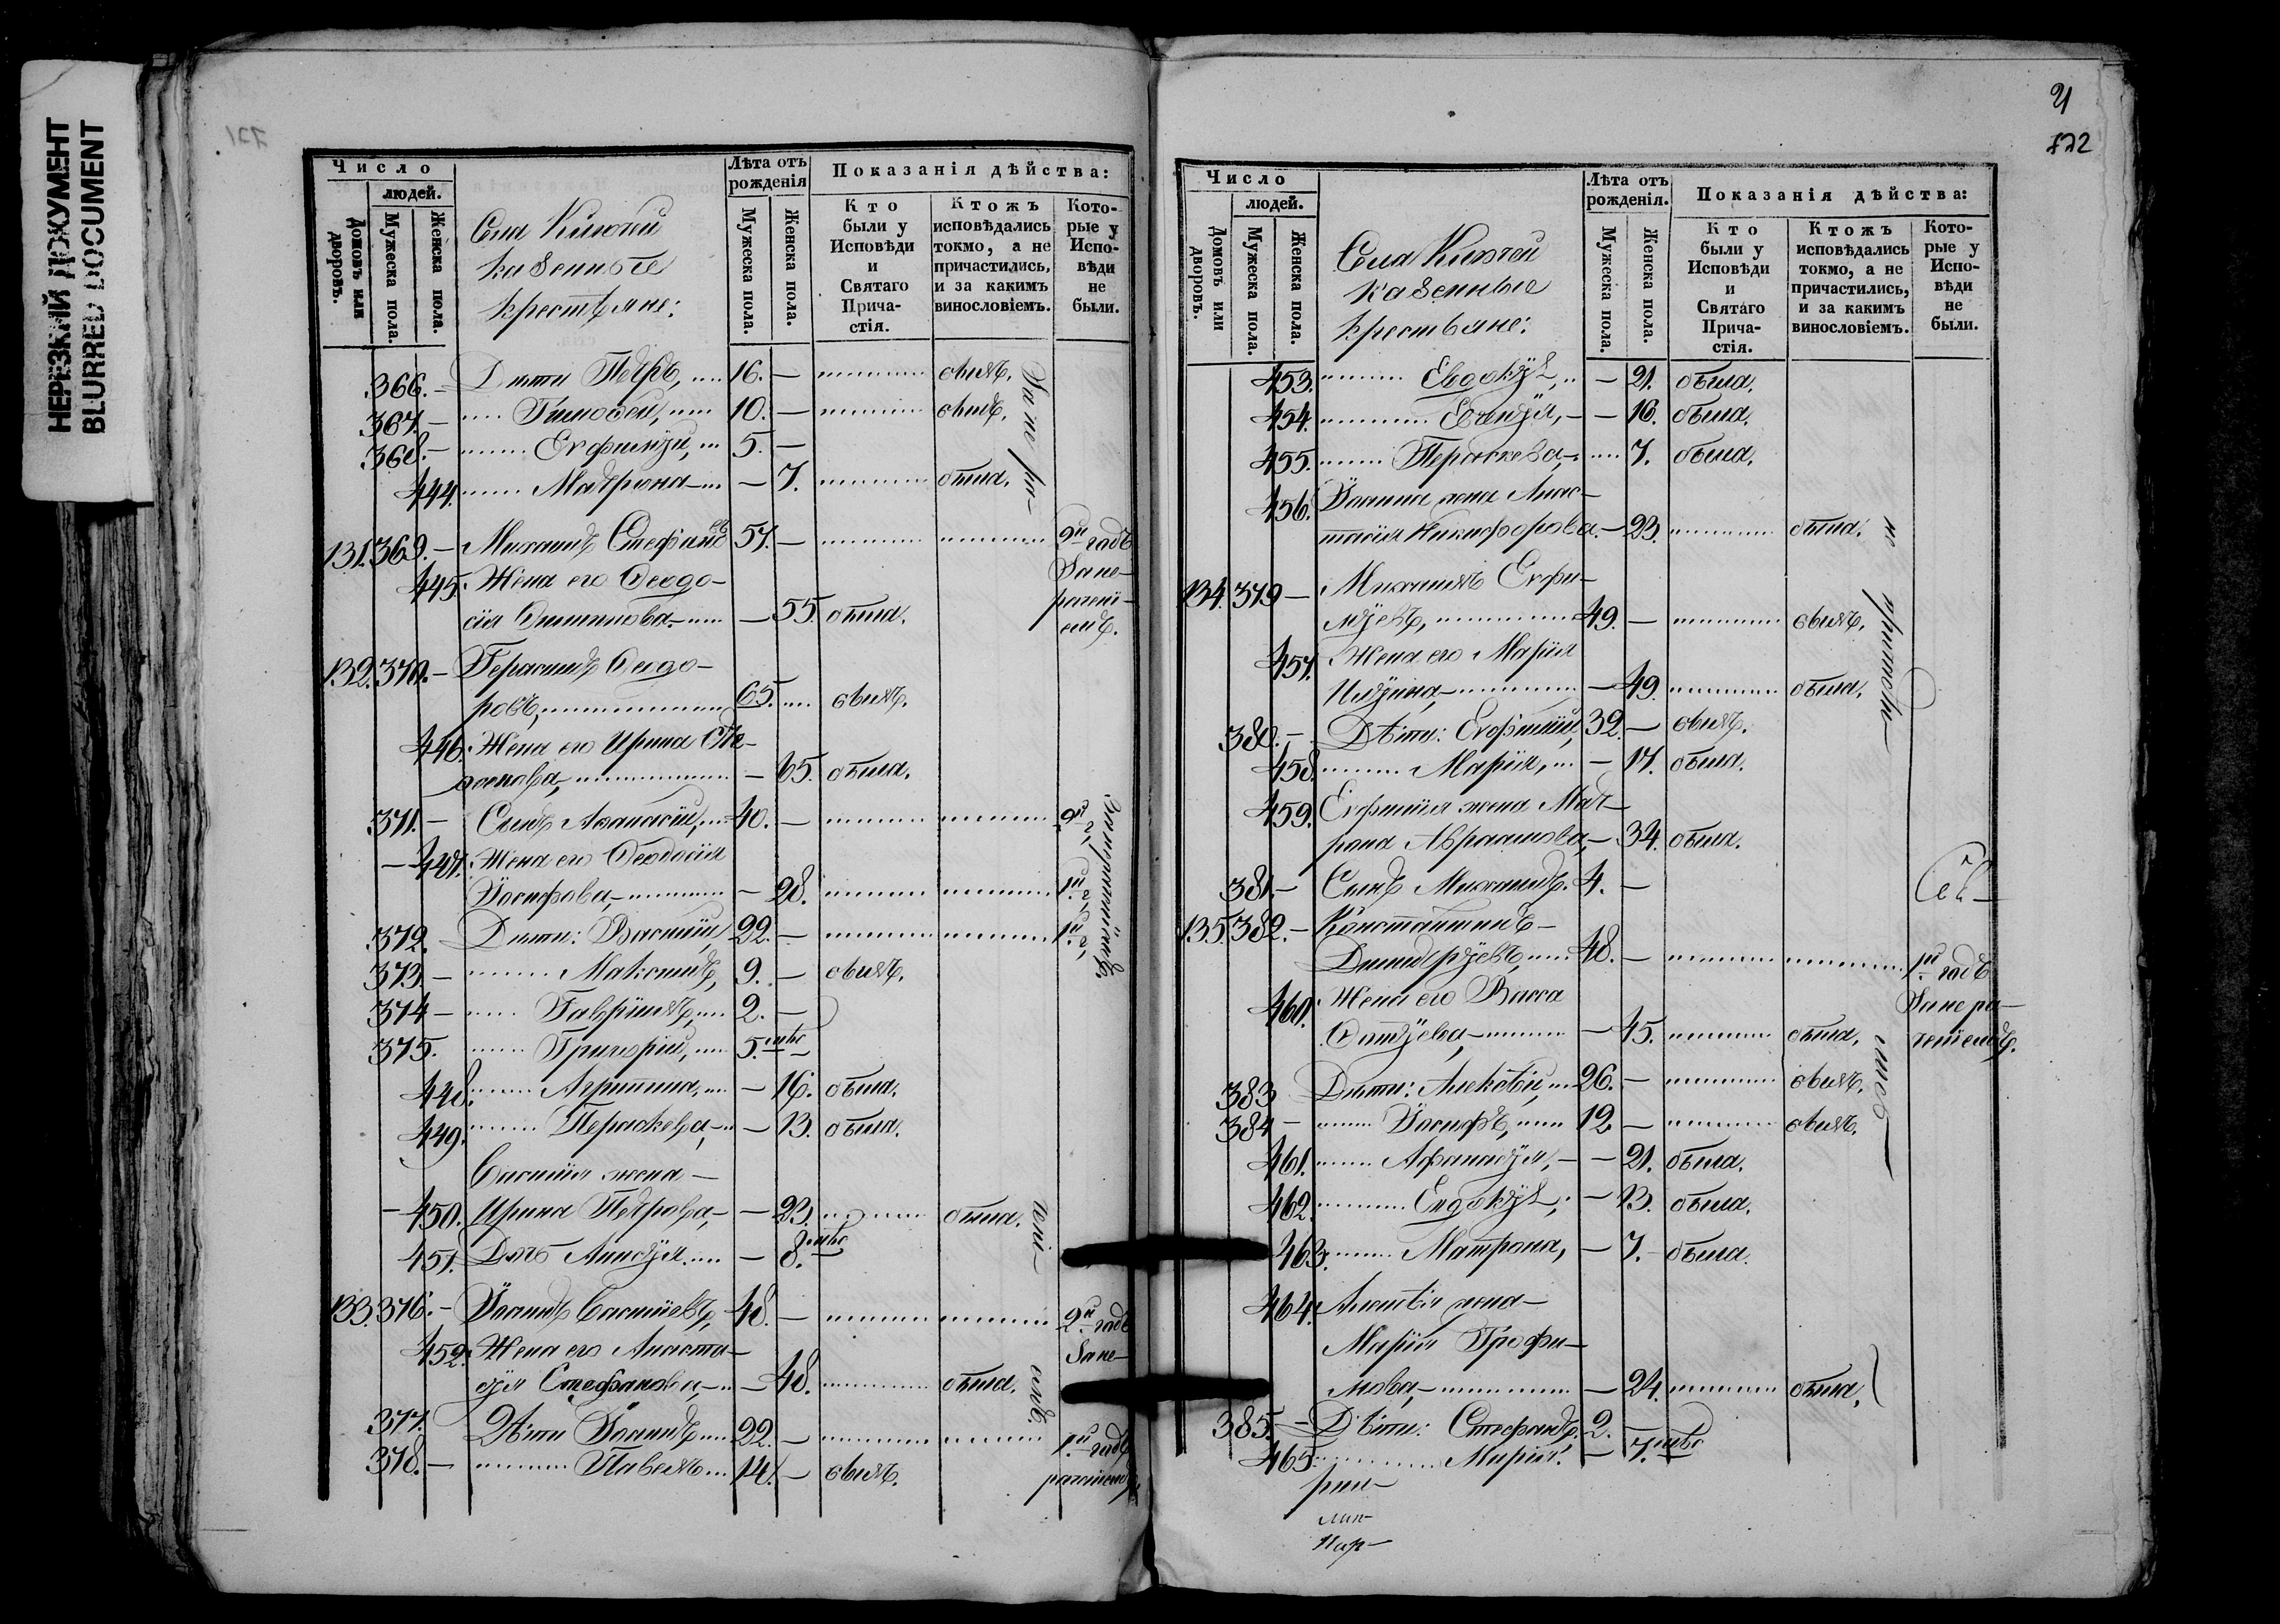 НЕРЕЗКИЙ ДОКУМЕНТ
BLURRED DOCUMENT
Число
людей.
Домовъ или дворовъ.
Мужеска пола.
Женска пола.
казенные
крестьяне:
Лѣта отъ рожденія
Мужеска пола.
Женска пола.
Показанія дѣйства:
Кто были у Исповѣди и Святаго Причастія.
Ктожъ исповѣдались токмо, а не причастились, и за какимъ винословіемъ.
Которые у Исповѣди не были.
366. — Дѣти Петръ, 16. — былъ.
367. — Тимофей, 10. — былъ.
368. — Евфимій, 5. —
444. Матрона — 7. была.
131. 369. — Михаилъ Стефановъ 57. — 2й годъ
445. Жена его Феодо-
сія — 55. была.
За нерачені-
емъ.
132. 370. — Герасимъ Феодо-
ровъ, 65. былъ.
446. Жена его Ирина
— 65. была.
371. — Сынъ Афанасій, 40. — 2й г.
447. Жена его Феодосія
Іосифова, — 28. 1й г.
372. Дѣти: Василій, 22. — 1й г.
373. — Максимъ, 9. — былъ.
374 — Гавріилъ, 2. —
375. Григорій, 5.
448. Агрипина, — 16. была.
449. Параскева, — 13. была.
Василія жена —
450. Ирина Петрова, — 23. была.
451. Дочь — 8.
133. 376. — Іоаннъ Васильевъ, 48. — 2й годъ
452. Жена его Анаста-
сія Стефанова, — 48. была.
За не-
377. Дѣти Іоаннъ 22. — 1й годъ
378. — Павелъ 14. — былъ.
21
722
Число
людей.
Домовъ или дворовъ.
Мужеска пола.
Женска пола.
казенные
крестьяне:
Лѣта отъ рожденія.
Мужеска пола.
Женска пола.
Показанія дѣйства:
Кто были у Исповѣди и Святаго Причастія.
Ктожъ исповѣдались токмо, а не причастились, и за какимъ винословіемъ.
Которые у Исповѣди не были.
453. Евдокія, — 21. была.
454. — 16. была.
455. Параскева, 7. была.
456. Іоанна жена Анас-
тасія Никифорова. — 23. была.
134. 379 — Михаилъ Евфи-
міевъ, 49. — былъ.
457. Жена его Марія
— 49. была.
380. — Дѣти: Евфимій, 32. — былъ.
458. Марія, — 17. была.
459. Евфимія жена Мат-
рона Авраамова, — 34. была.
381. — Сынъ Михаилъ. 4. —
135. 382. — Константинъ
Димитріевъ, 48. — 1й годъ
460. Жена его Васса
— 45. была.
За нера-
ченіемъ.
383 Дѣти: Алексѣй, 26. — былъ.
384 — Іосифъ, 12 — былъ.
461. Афанасія, — 21. была.
462. Евдокія, — 13. была.
463. Матрона, — 7. была.
464. Алексѣя жена —
Марія Трофи-
мова, — 24. была.
385. — Дѣти: Стефанъ. 2.
465. Марія. — 7.